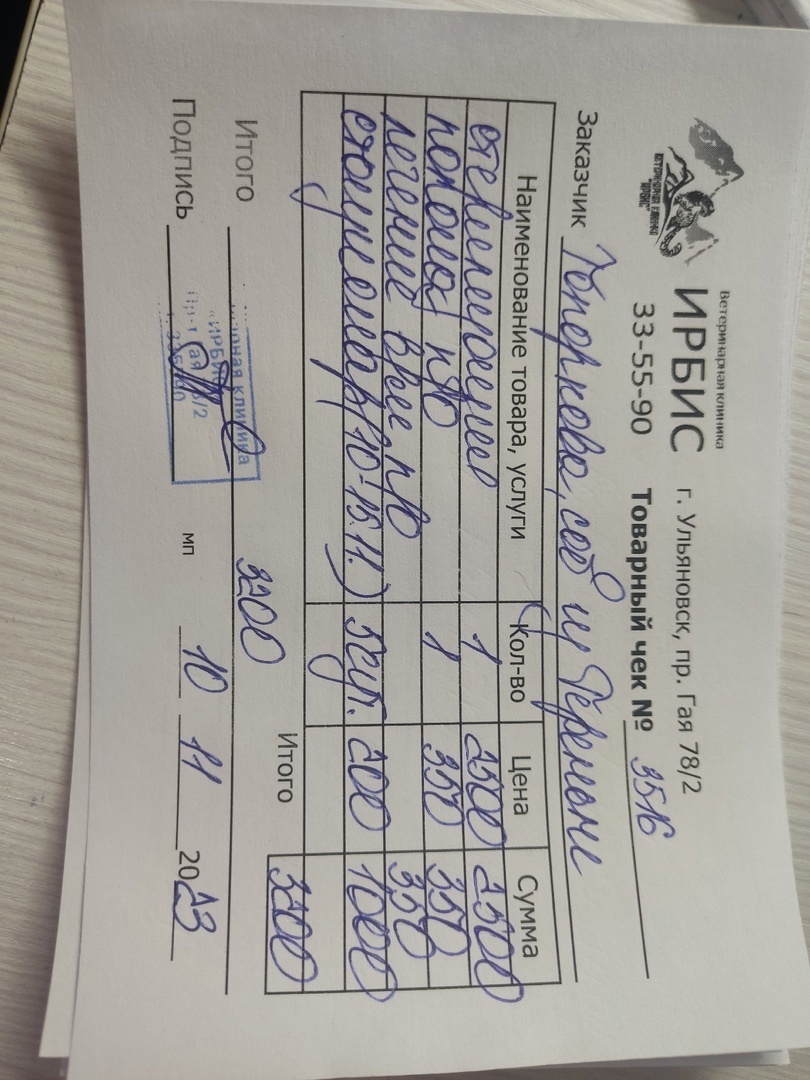 Ветеринарная клиника
ИРБИС г. Ульяновск, пр. Гая 78/2
33-55-90 Товарный чек № 3516
ВЕТЕРИНАРНАЯ КЛИНИКА
"ИРБИС"
Заказчик Топоркова, соб
Наименование товара, услуги Кол-во Цена Сумма
стерилизация 1 1500 1500
попона 1 350 350
лечение п/о 350
стационар (10-15.11.) 5сут. 200 1000
Итого 3200
Итого 3200
Подпись мп 10 11 2023
клиника
"ИРБИС"
пр-т Гая 78/2